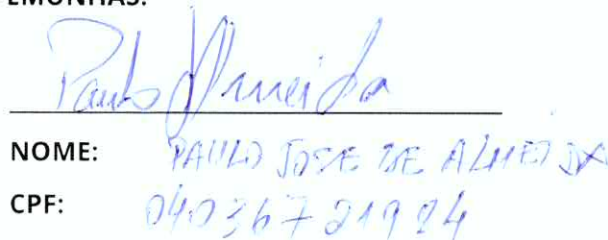 EMUNHAS:
Paulo Almeida
NOME: PAULO JOSE DE ALMEIDA
CPF: 04036721924